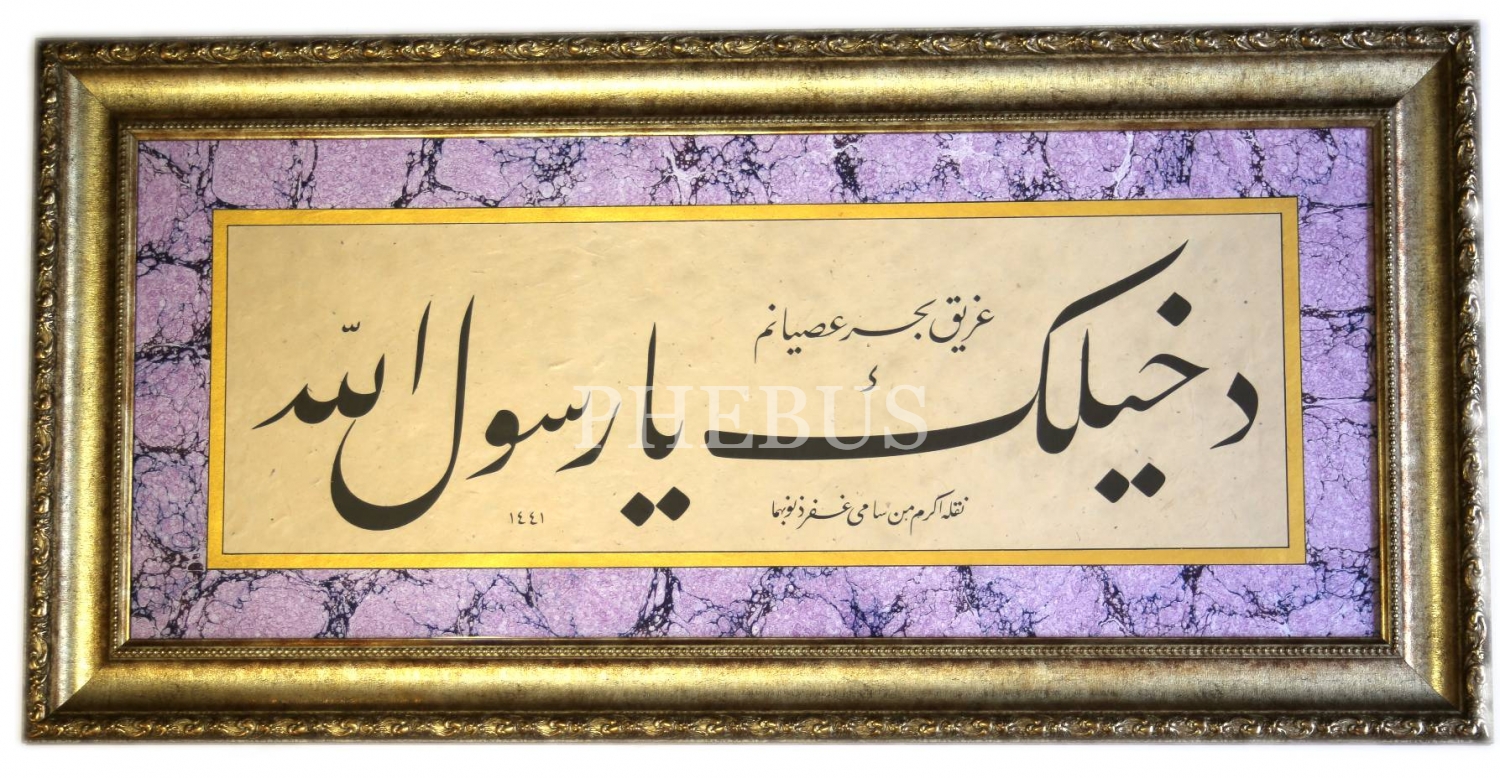 غريق بحر عصيانم
دخيلك يا رسول الله
نقله اكرم من سامى غفر ذنوبهما
١٤٤١
PHEBUS